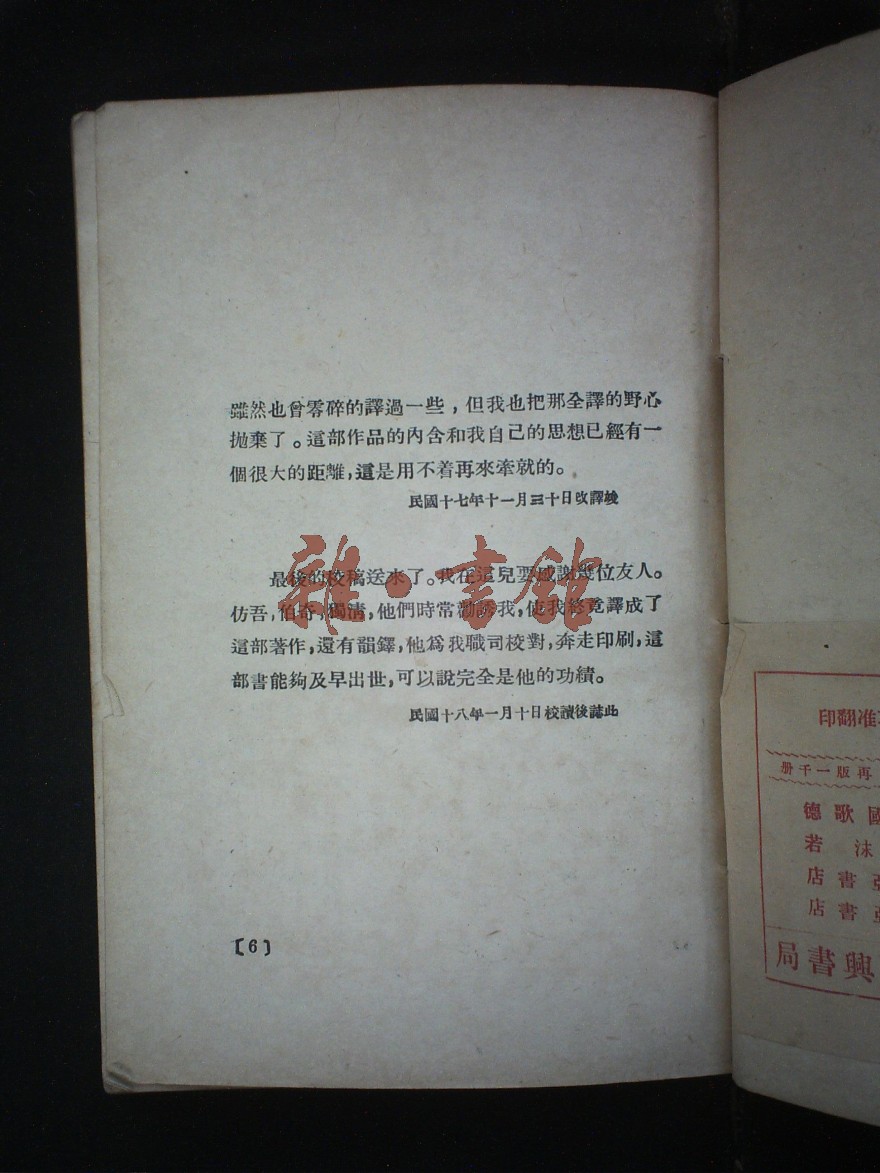 雖然也曾零碎的譯過一些，但我也把那全譯的野心
拋棄了。這部作品的內含和我自己的思想已經有一
個很大的距離，這是用不着再來牽就的。
民國十七年十一月三十日改譯竣
最後的校稿送來了。我在這兒要感謝幾位友人。
仿吾，伯奇，獨清，他們時常勸誘我，使我終竟譯成了
這部著作，還有韻鐸，他爲我職司校對，奔走印刷，這
部書能夠及早出世，可以說完全是他的功績。
民國十八年一月十日校讀後誌此
〔6〕
雜·書館
准翻印
再版一千册
國歌德
沫若
書店
書店
興書局